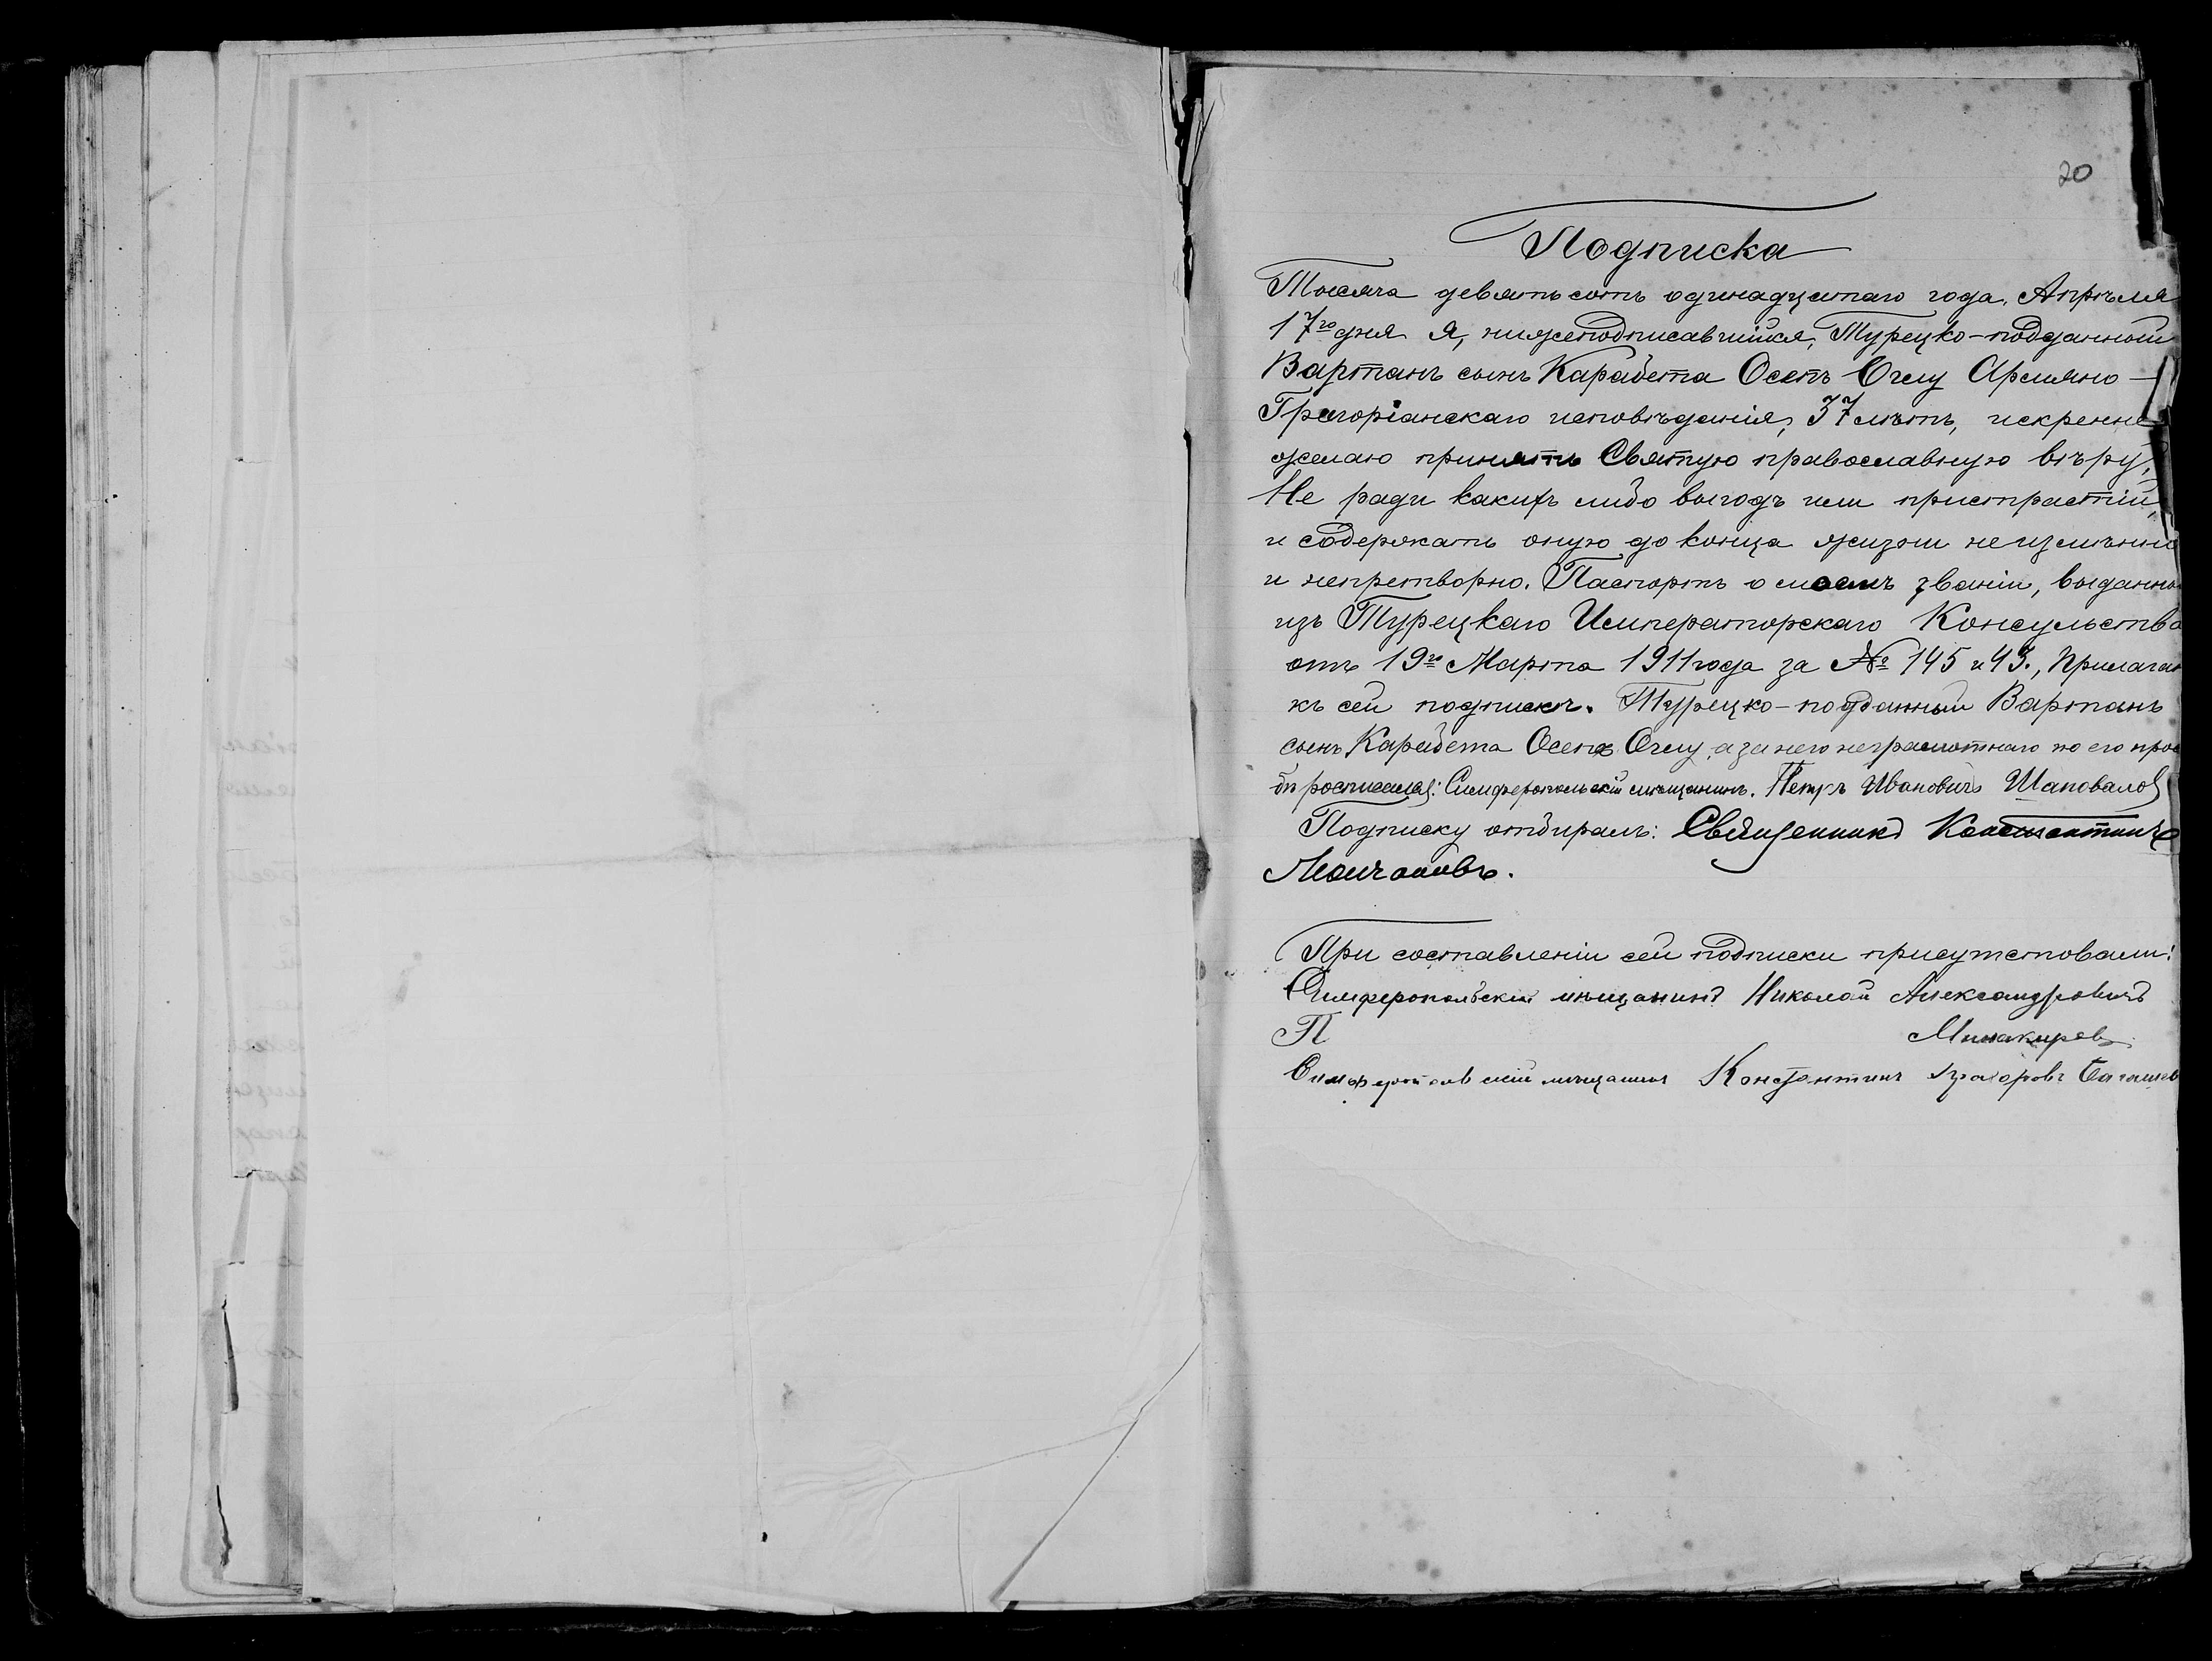 20
Подписка
Тысяча девятьсотъ одинадцатаго года, Апрѣля
17го дня я, нижеподписавшійся, Турецко-подданный
Вартанъ сынъ Карабета Осепъ Оглу Армяно-
Григоріанскаго исповѣданія, 37 лѣтъ, искренне
желаю принять Святую православную вѣру,
Не ради какихъ либо выгодъ или пристрастій,
и содержать оную до конца жизни неизмѣнно
и непретворно. Паспортъ о моемъ званіи, выданно
изъ Турецкаго Императорскаго Консульства
отъ 19го Марта 1911 года за № 145 и 43., Прилагаю
къ сей подпискѣ. Турецко-подданный Вартанъ
сынъ Карабета Осепъ Оглу, а за него неграмотнаго по его прос
бѣ росписался: Симферопольскій мѣщанинъ. Петръ Ивановичъ Шаповалов
Подписку отбиралъ: Священникъ Константинъ
При составленіи сей подписки присутствовали:
Симферопольскій мѣщанинъ Николай Александровичъ
П
Симферопольскій мѣщанинъ Константинъ